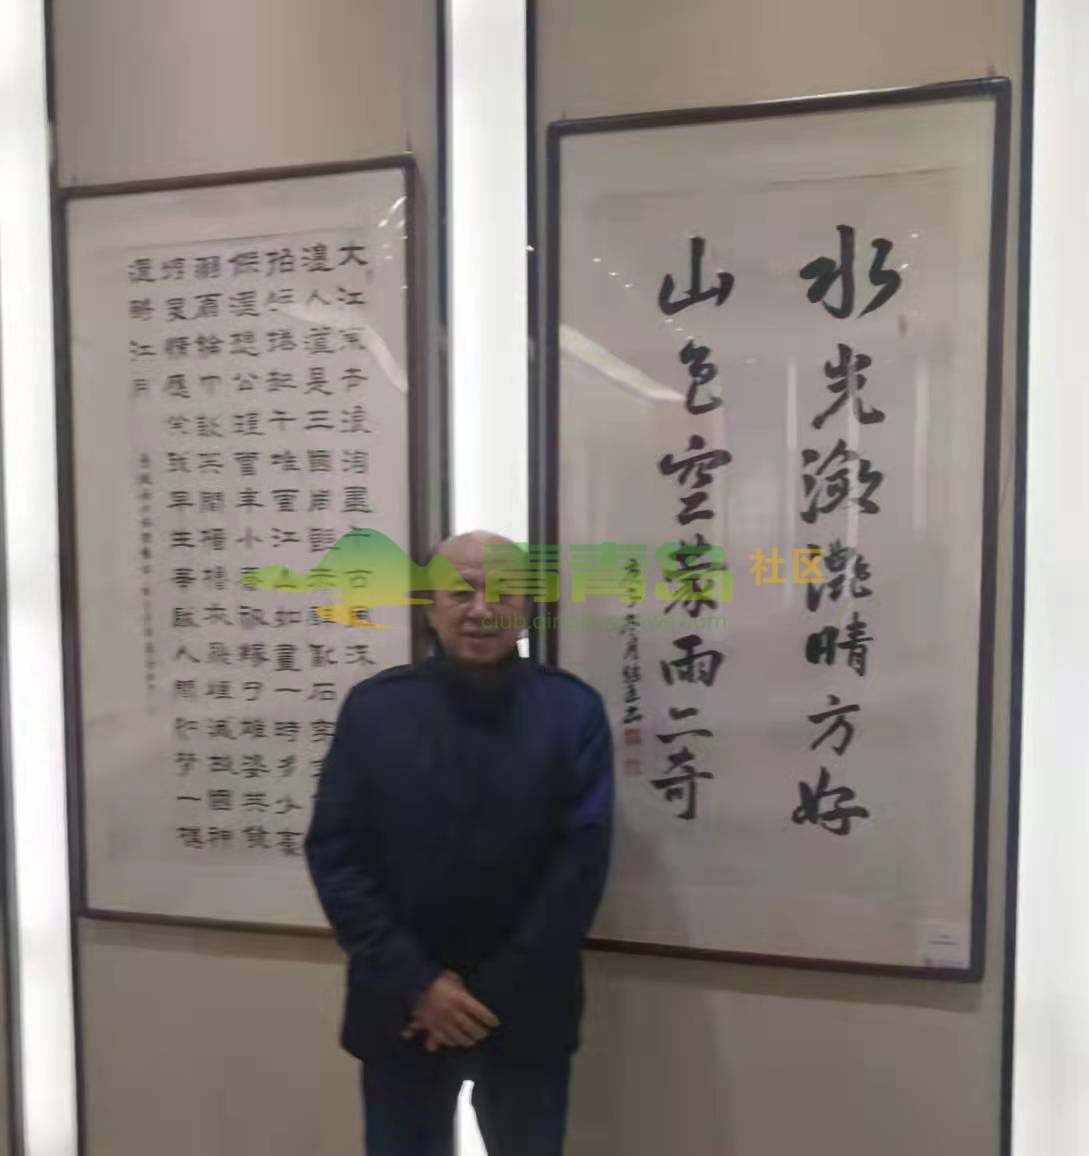 水光瀲灩晴方好
山色空蒙雨亦奇
大江東去浪淘盡千古風流
邊人道是三國周郎赤壁亂石穿空
拍岸捲起千堆雪江山如畫一時多少豪
傑遙想公瑾當年小喬初嫁了雄姿英發
羽扇綸巾談笑間檣櫓灰飛煙滅故國神
情應笑我早生華髮人間如夢一樽
還酹江月
青青岛 社区
club.qingdaonews.com